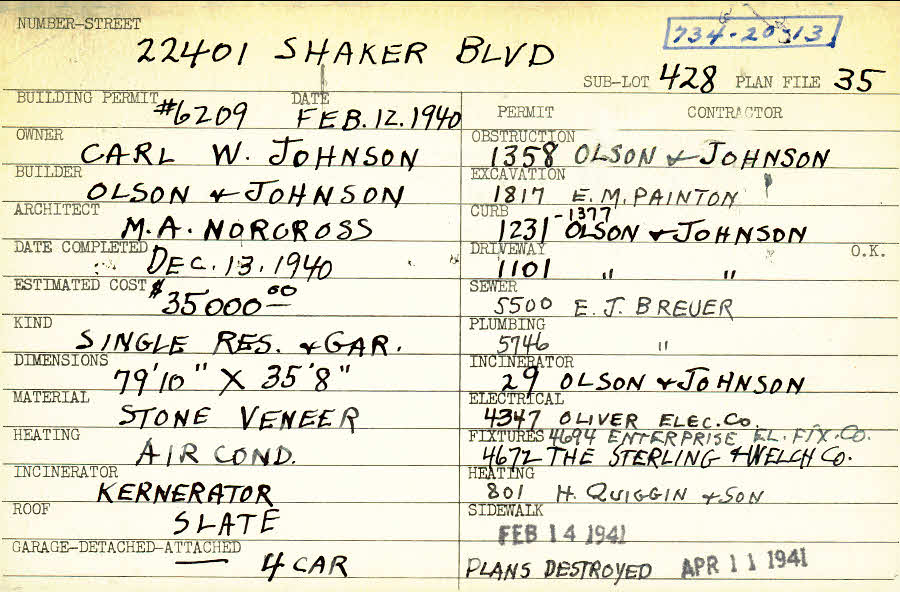 NUMBER-STREET
22401 SHAKER BLVD
734-20-13
SUB-LOT 428 PLAN FILE 35
BUILDING PERMIT #6209 DATE FEB. 12. 1940
OWNER
CARL W. JOHNSON
BUILDER
OLSON & JOHNSON
ARCHITECT
M.A. NORCROSS
DATE COMPLETED
DEC. 13. 1940
ESTIMATED COST $35000 00
KIND
SINGLE RES. & GAR.
DIMENSIONS
79'10" X 35'8"
MATERIAL
STONE VENEER
HEATING
AIR COND.
INCINERATOR
KERNERATOR
ROOF
SLATE
GARAGE-DETACHED-ATTACHED
4 CAR
PERMIT CONTRACTOR
OBSTRUCTION
1358 OLSON & JOHNSON
EXCAVATION
1817 E. M. PAINTON
CURB -1377
1231 OLSON & JOHNSON
DRIVEWAY O.K.
1101 " "
SEWER
5500 E. J. BREUER
PLUMBING
5746 "
INCINERATOR
29 OLSON & JOHNSON
ELECTRICAL
4347 OLIVER ELEC. CO.
FIXTURES 4694 ENTERPRISE EL. FIX. CO.
4672 THE STERLING & WELCH CO.
HEATING
801 H. QUIGGIN & SON
SIDEWALK
FEB 14 1941
PLANS DESTROYED APR 11 1941